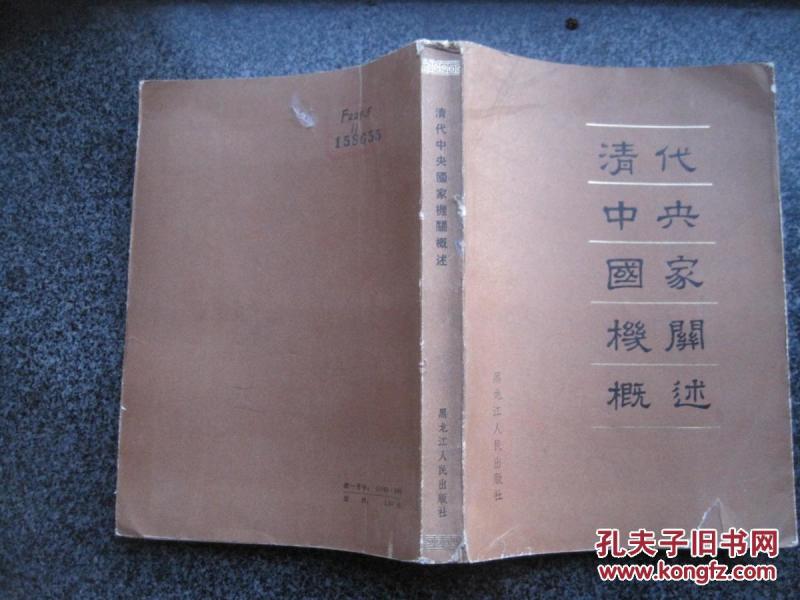 清代
中央
國家
機關
概述
黑龙江人民出版社
清代中央國家機關概述
黑龙江人民出版社
159655
孔夫子旧书网
www.kongfz.com